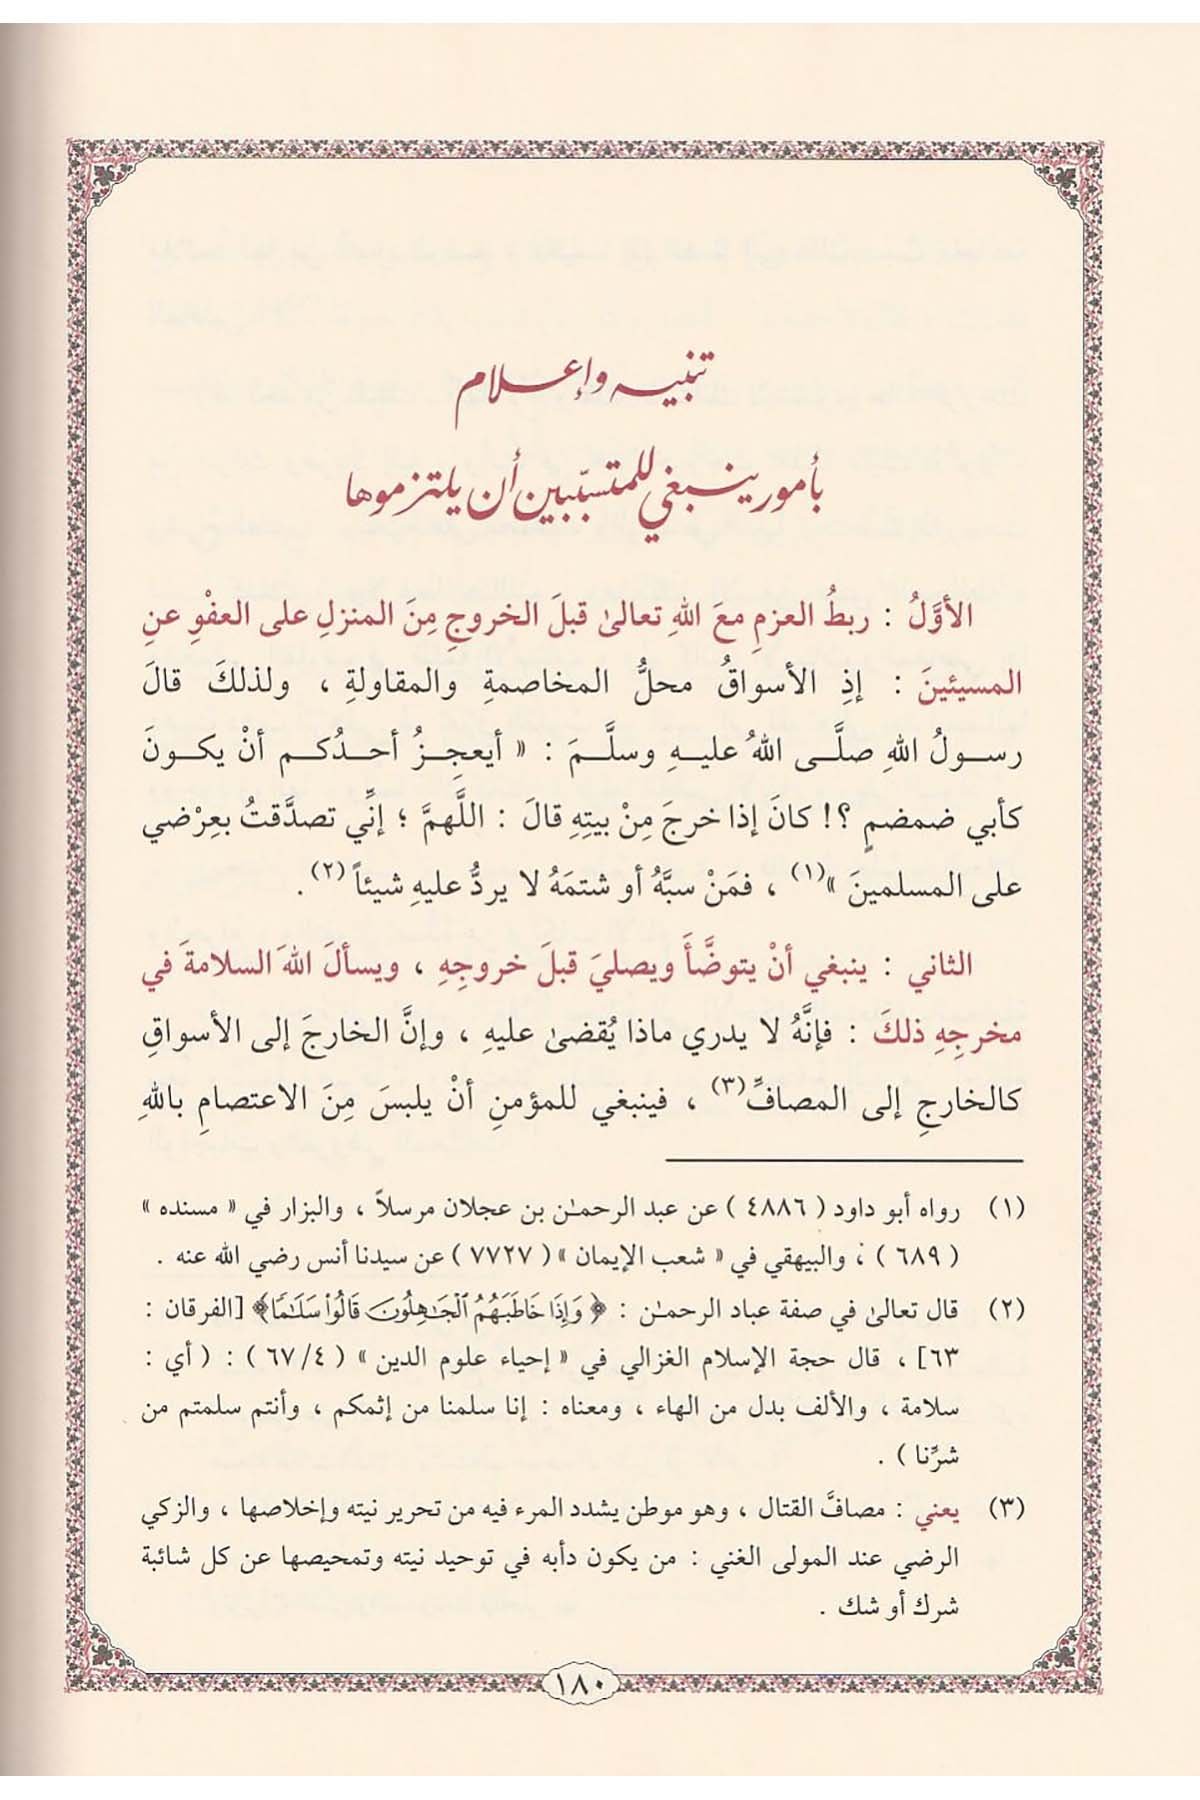 تنبيه وإعلام
بأمور ينبغي للمتسبّبين أن يلتزموها
الأوَّلُ : ربطُ العزمِ معَ اللهِ تعالىٰ قبلَ الخروجِ مِنَ المنزلِ على العفْوِ عنِ
المسيئينَ : إذِ الأسواقُ محلُّ المخاصمةِ والمقاولةِ ، ولذلكَ قالَ
رسولُ اللهِ صلَّى اللهُ عليهِ وسلَّمَ : « أيعجِزُ أحدُكم أنْ يكونَ
كأبي ضمضمٍ ؟! كانَ إذا خرجَ مِنْ بيتِهِ قالَ : اللَّهمَّ ؛ إنِّي تصدَّقتُ بعِرْضي
على المسلمينَ »(١) ، فمَنْ سبَّهُ أو شتمَهُ لا يردُّ عليهِ شيئاً(٢) .
الثاني : ينبغي أنْ يتوضَّأَ ويصليَ قبلَ خروجِهِ ، ويسألَ اللهَ السلامةَ في
مخرجِهِ ذلكَ : فإنَّهُ لا يدري ماذا يُقضىٰ عليهِ ، وإنَّ الخارجَ إلى الأسواقِ
كالخارجِ إلى المصافِّ(٣) ، فينبغي للمؤمنِ أنْ يلبسَ مِنَ الاعتصامِ باللهِ
(١) رواه أبو داود ( ٤٨٨٦ ) عن عبد الرحمـٰن بن عجلان مرسلاً ، والبزار في « مسنده »
( ٦٨٩ ) ، والبيهقي في « شعب الإيمان » ( ٧٧٢٧ ) عن سيدنا أنس رضي الله عنه .
(٢) قال تعالىٰ في صفة عباد الرحمـٰن : ﴿ وَإِذَا خَاطَبَهُمُ ٱلْجَـٰهِلُونَ قَالُوا۟ سَلَـٰمًا﴾ [الفرقان :
٦٣] ، قال حجة الإسلام الغزالي في « إحياء علوم الدين » ( ٤/ ٦٧ ) : ( أي :
سلامة ، والألف بدل من الهاء ، ومعناه : إنا سلمنا من إثمكم ، وأنتم سلمتم من
شرِّنا ) .
(٣) يعني : مصافَّ القتال ، وهو موطن يشدد المرء فيه من تحرير نيته وإخلاصها ، والزكي
الرضي عند المولى الغني : من يكون دأبه في توحيد نيته وتمحيصها عن كل شائبة
شرك أو شك .
١٨٠